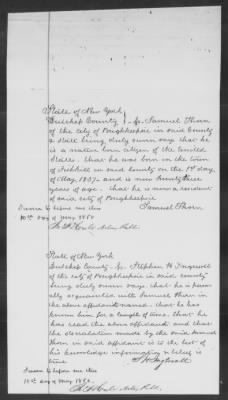 State of New York
Dutchess County } ss. Samuel Thorn
of the City of Poughkeepsie in said County
& State being duly sworn says that he
is a native born citizen of the United
States. that he was born in the town
of Fishkill in said County on the 1st day
of May 1827 and is now twenty three
years of age. that he is now a resident
of said city of Poughkeepsie
Samuel Thorn
Sworn to before me this
10th day of May 1850

State of New York
Dutchess County ss. Stephen H.
of the city of Poughkeepsie in said county
being duly sworn says, that he is person-
ally acquainted with Samuel Thorn in
the above affidavit named. that he has
known him for a length of time. that he
has read the above affidavit and that
the declaration made by the said Samuel
Thorn in said affidavit is to the best of
his knowledge information & belief is
true
Sworn to before me this
10th day of May 1850